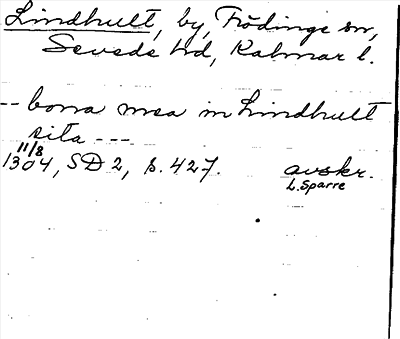 Lindhult, by, Frödinge sn,
Sevede hd, Kalmar l.
-- bona mea in Lindhult
sita ---
11/8
1304, SD 2, s. 427. avskr.
L. Sparre